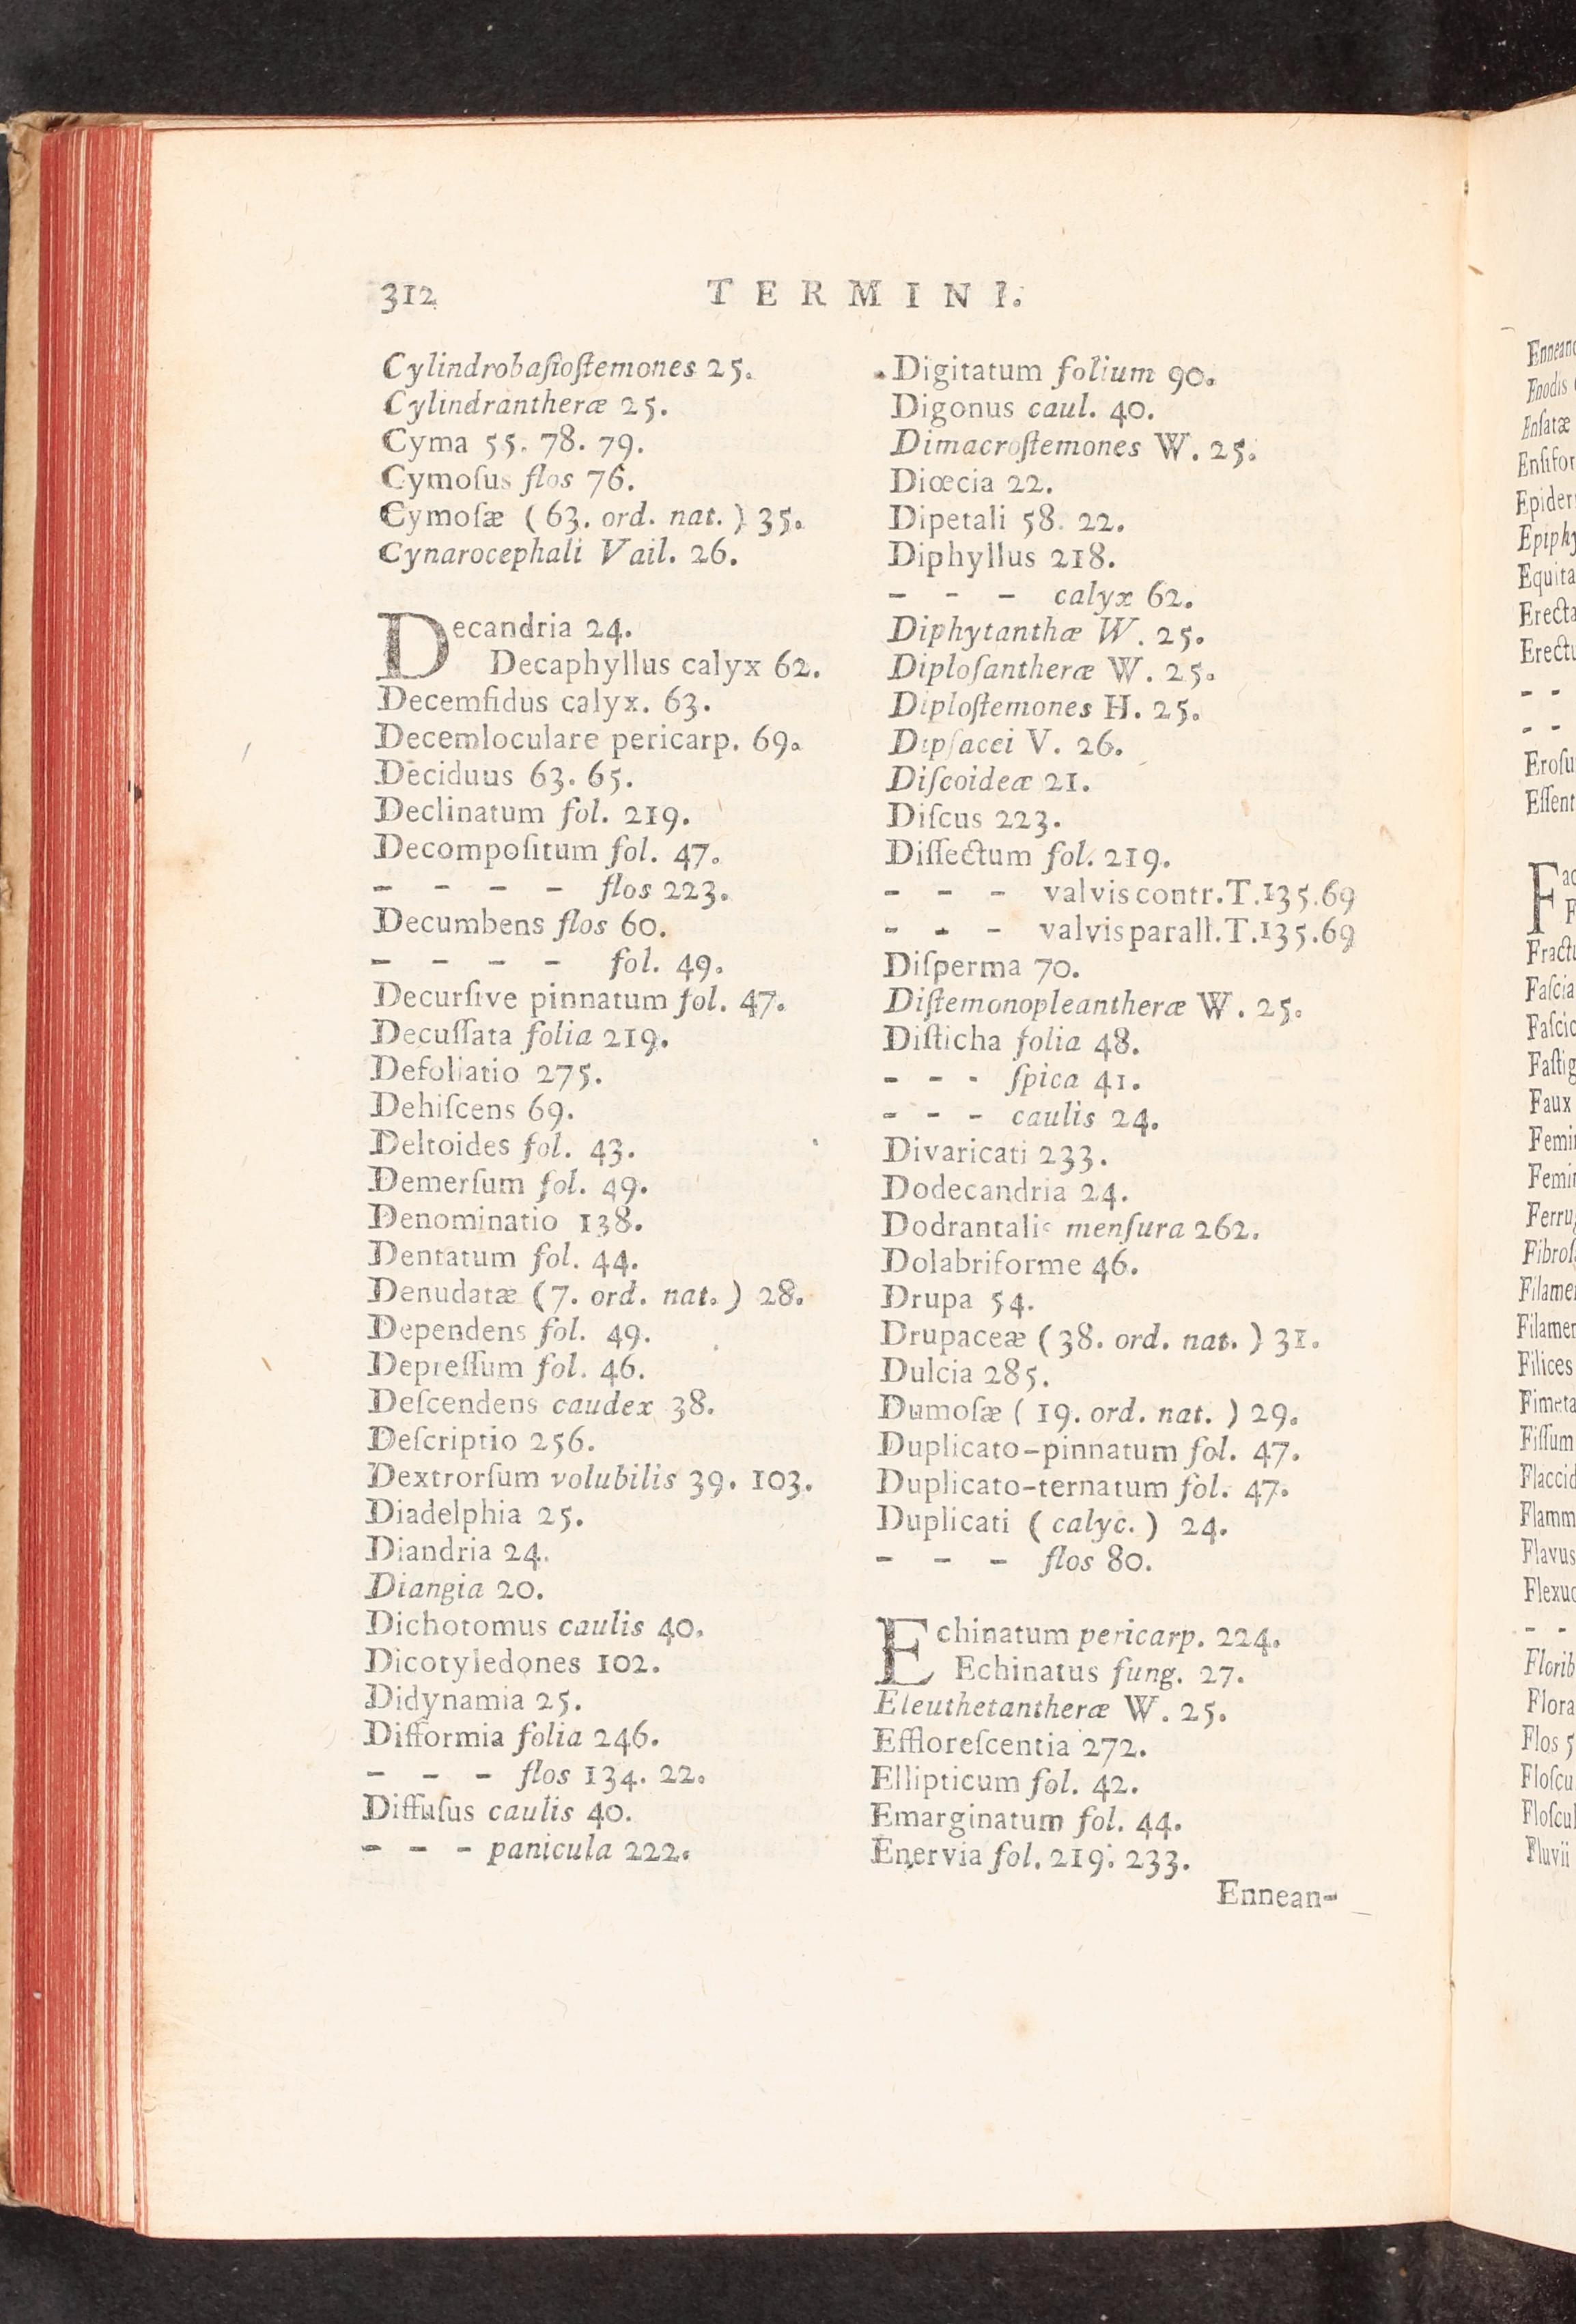 312
TERMINI.
Cylindrobaſioſtemones 25.
Cylindrantheræ 25.
Cyma 55. 78. 79.
Cymoſus flos 76.
Cymoſæ (63. ord. nat.) 35.
Cynarocephali Vail. 26.
Decandria 24.
Decaphyllus calyx 62.
Decemfidus calyx. 63.
Decemloculare pericarp. 69.
Deciduus 63. 65.
Declinatum fol. 219.
Decompoſitum fol. 47.
- - - - flos 223.
Decumbens flos 60.
- - - - fol. 49.
Decurſive pinnatum fol. 47.
Decuſſata folia 219.
Defoliatio 275.
Dehiſcens 69.
Deltoides fol. 43.
Demerſum fol. 49.
Denominatio 138.
Dentatum fol. 44.
Denudatæ (7. ord. nat.) 28.
Dependens fol. 49.
Depreſſum fol. 46.
Deſcendens caudex 38.
Deſcriptio 256.
Dextrorſum volubilis 39. 103.
Diadelphia 25.
Diandria 24.
Diangia 20.
Dichotomus caulis 40.
Dicotyledones 102.
Didynamia 25.
Difformia folia 246.
- - - flos 134. 22.
Diffuſus caulis 40.
- - - panicula 222.
Digitatum folium 90.
Digonus caul. 40.
Dimacroſtemones W. 25.
Diœcia 22.
Dipetali 58. 22.
Diphyllus 218.
- - - calyx 62.
Diphytanthæ W. 25.
Diploſantheræ W. 25.
Diploſtemones H. 25.
Dipſacei V. 26.
Diſcoideæ 21.
Diſcus 223.
Diſſectum fol. 219.
- - - valvis contr. T. 135. 69
- - - valvis parall. T. 135. 69
Diſperma 70.
Diſtemonopleantheræ W. 25.
Diſticha folia 48.
- - - ſpica 41.
- - - caulis 24.
Divaricati 233.
Dodecandria 24.
Dodrantalis menſura 262.
Dolabriforme 46.
Drupa 54.
Drupaceæ (38. ord. nat.) 31.
Dulcia 285.
Dumoſæ (19. ord. nat.) 29.
Duplicato-pinnatum fol. 47.
Duplicato-ternatum fol. 47.
Duplicati (calyc.) 24.
- - - flos 80.
Echinatum pericarp. 224.
Echinatus fung. 27.
Eleuthetantheræ W. 25.
Effloreſcentia 272.
Ellipticum fol. 42.
Emarginatum fol. 44.
Enervia fol. 219. 233.
Ennean-